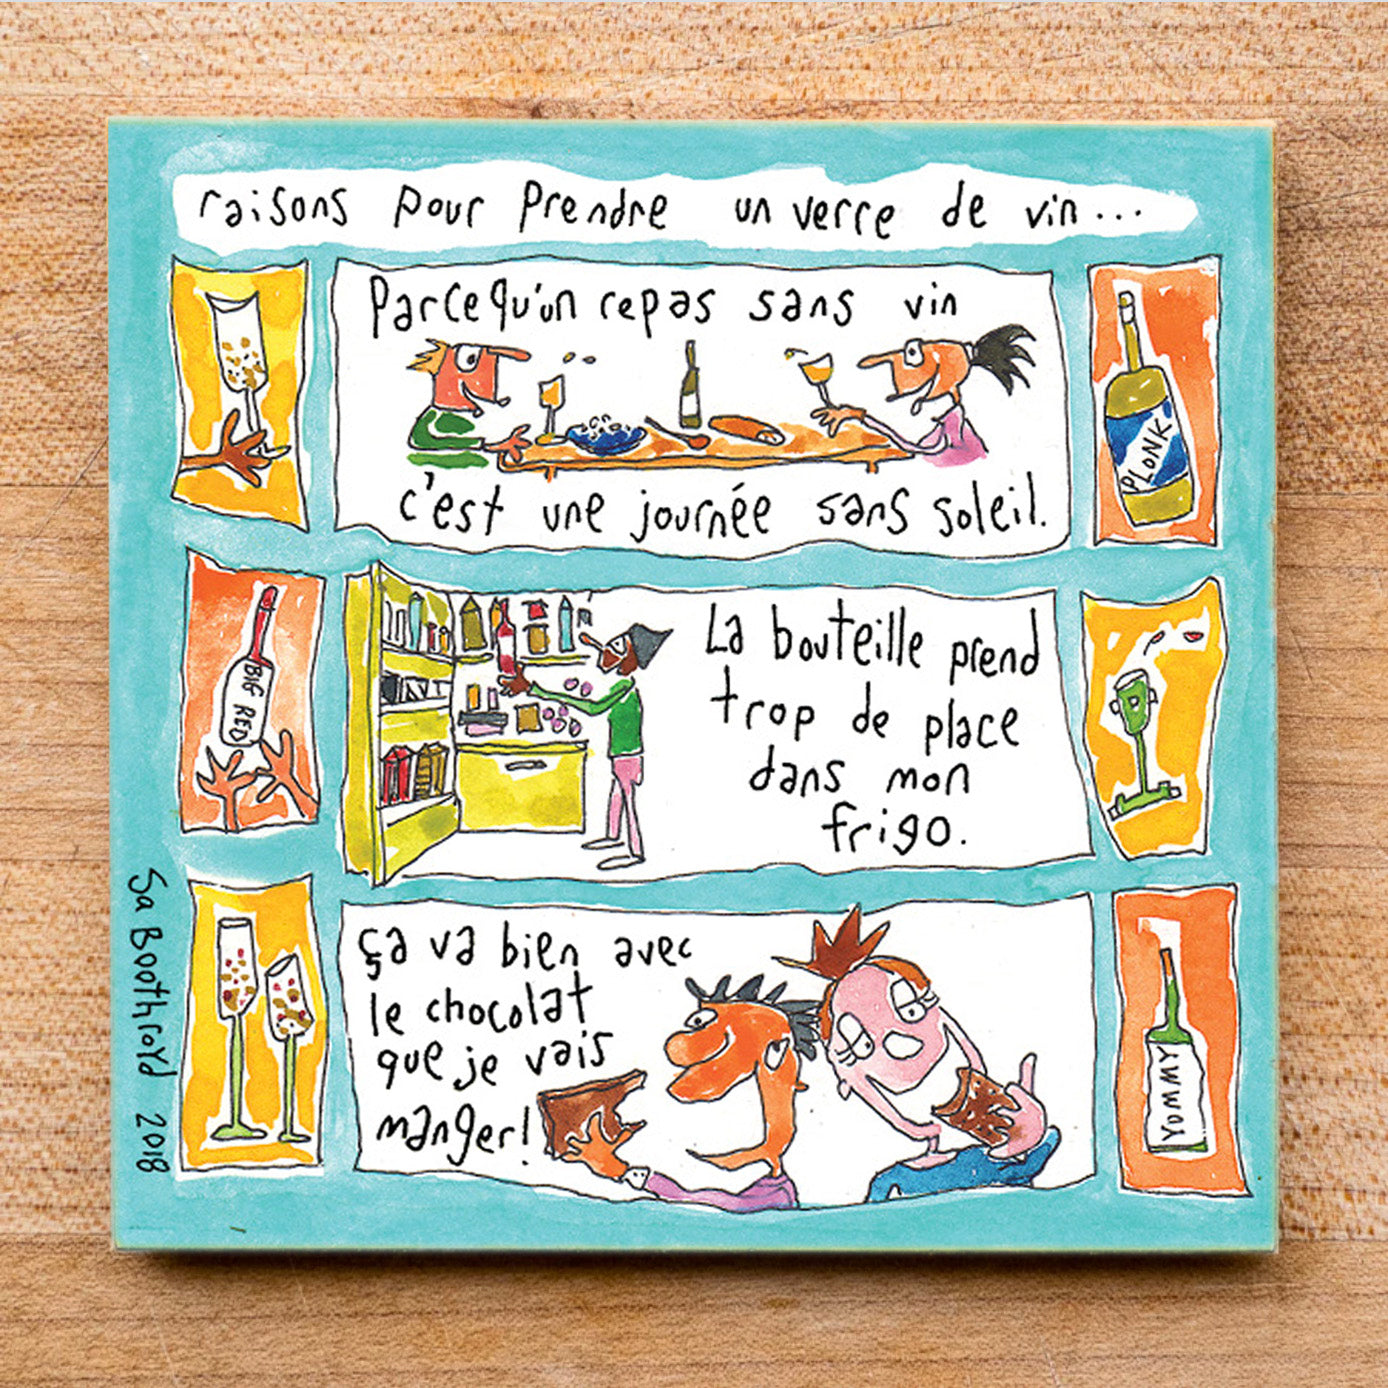 raisons pour prendre un verre de vin...
Parce qu'un repas sans vin
c'est une journée sans soleil.
PLONK
BIG RED
La bouteille prend
trop de place
dans mon
frigo.
ça va bien avec
le chocolat
que je vais
manger!
YUMMY
Sa Boothroyd 2018